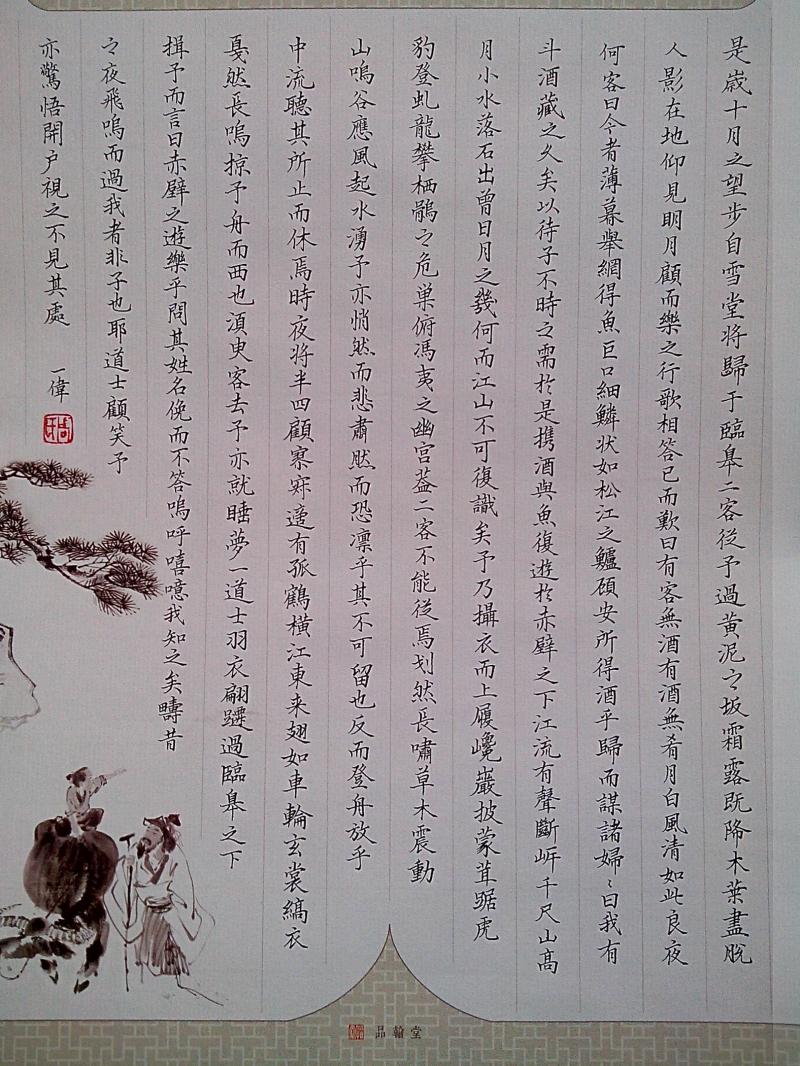 是歲十月之望步自雪堂将歸于臨皋二客從予過黃泥之坂霜露既降木葉盡脫
人影在地仰見明月顧而樂之行歌相答已而歎曰有客無酒有酒無肴月白風清如此良夜
何客曰今者薄暮舉網得魚巨口細鱗状如松江之鱸顧安所得酒乎歸而謀諸婦〻曰我有
斗酒藏之久矣以待子不時之需於是携酒與魚復遊於赤壁之下江流有聲斷岸千尺山高
月小水落石出曾日月之幾何而江山不可復識矣予乃攝衣而上履巉巖披蒙茸踞虎
豹登虬龍攀栖鶻之危巢俯馮夷之幽宮蓋二客不能從焉划然長嘯草木震動
山鳴谷應風起水湧予亦悄然而悲肅然而恐凛乎其不可留也反而登舟放乎
中流聽其所止而休焉時夜将半四顧寥寂適有孤鶴橫江東来翅如車輪玄裳縞衣
戛然長鳴掠予舟而西也須臾客去予亦就睡夢一道士羽衣翩躚過臨皋之下
揖予而言曰赤壁之遊樂乎問其姓名俛而不答嗚呼嘻噫我知之矣疇昔
之夜飛鳴而過我者非子也耶道士顧笑予
亦驚悟開户視之不見其處 一偉
品翰堂